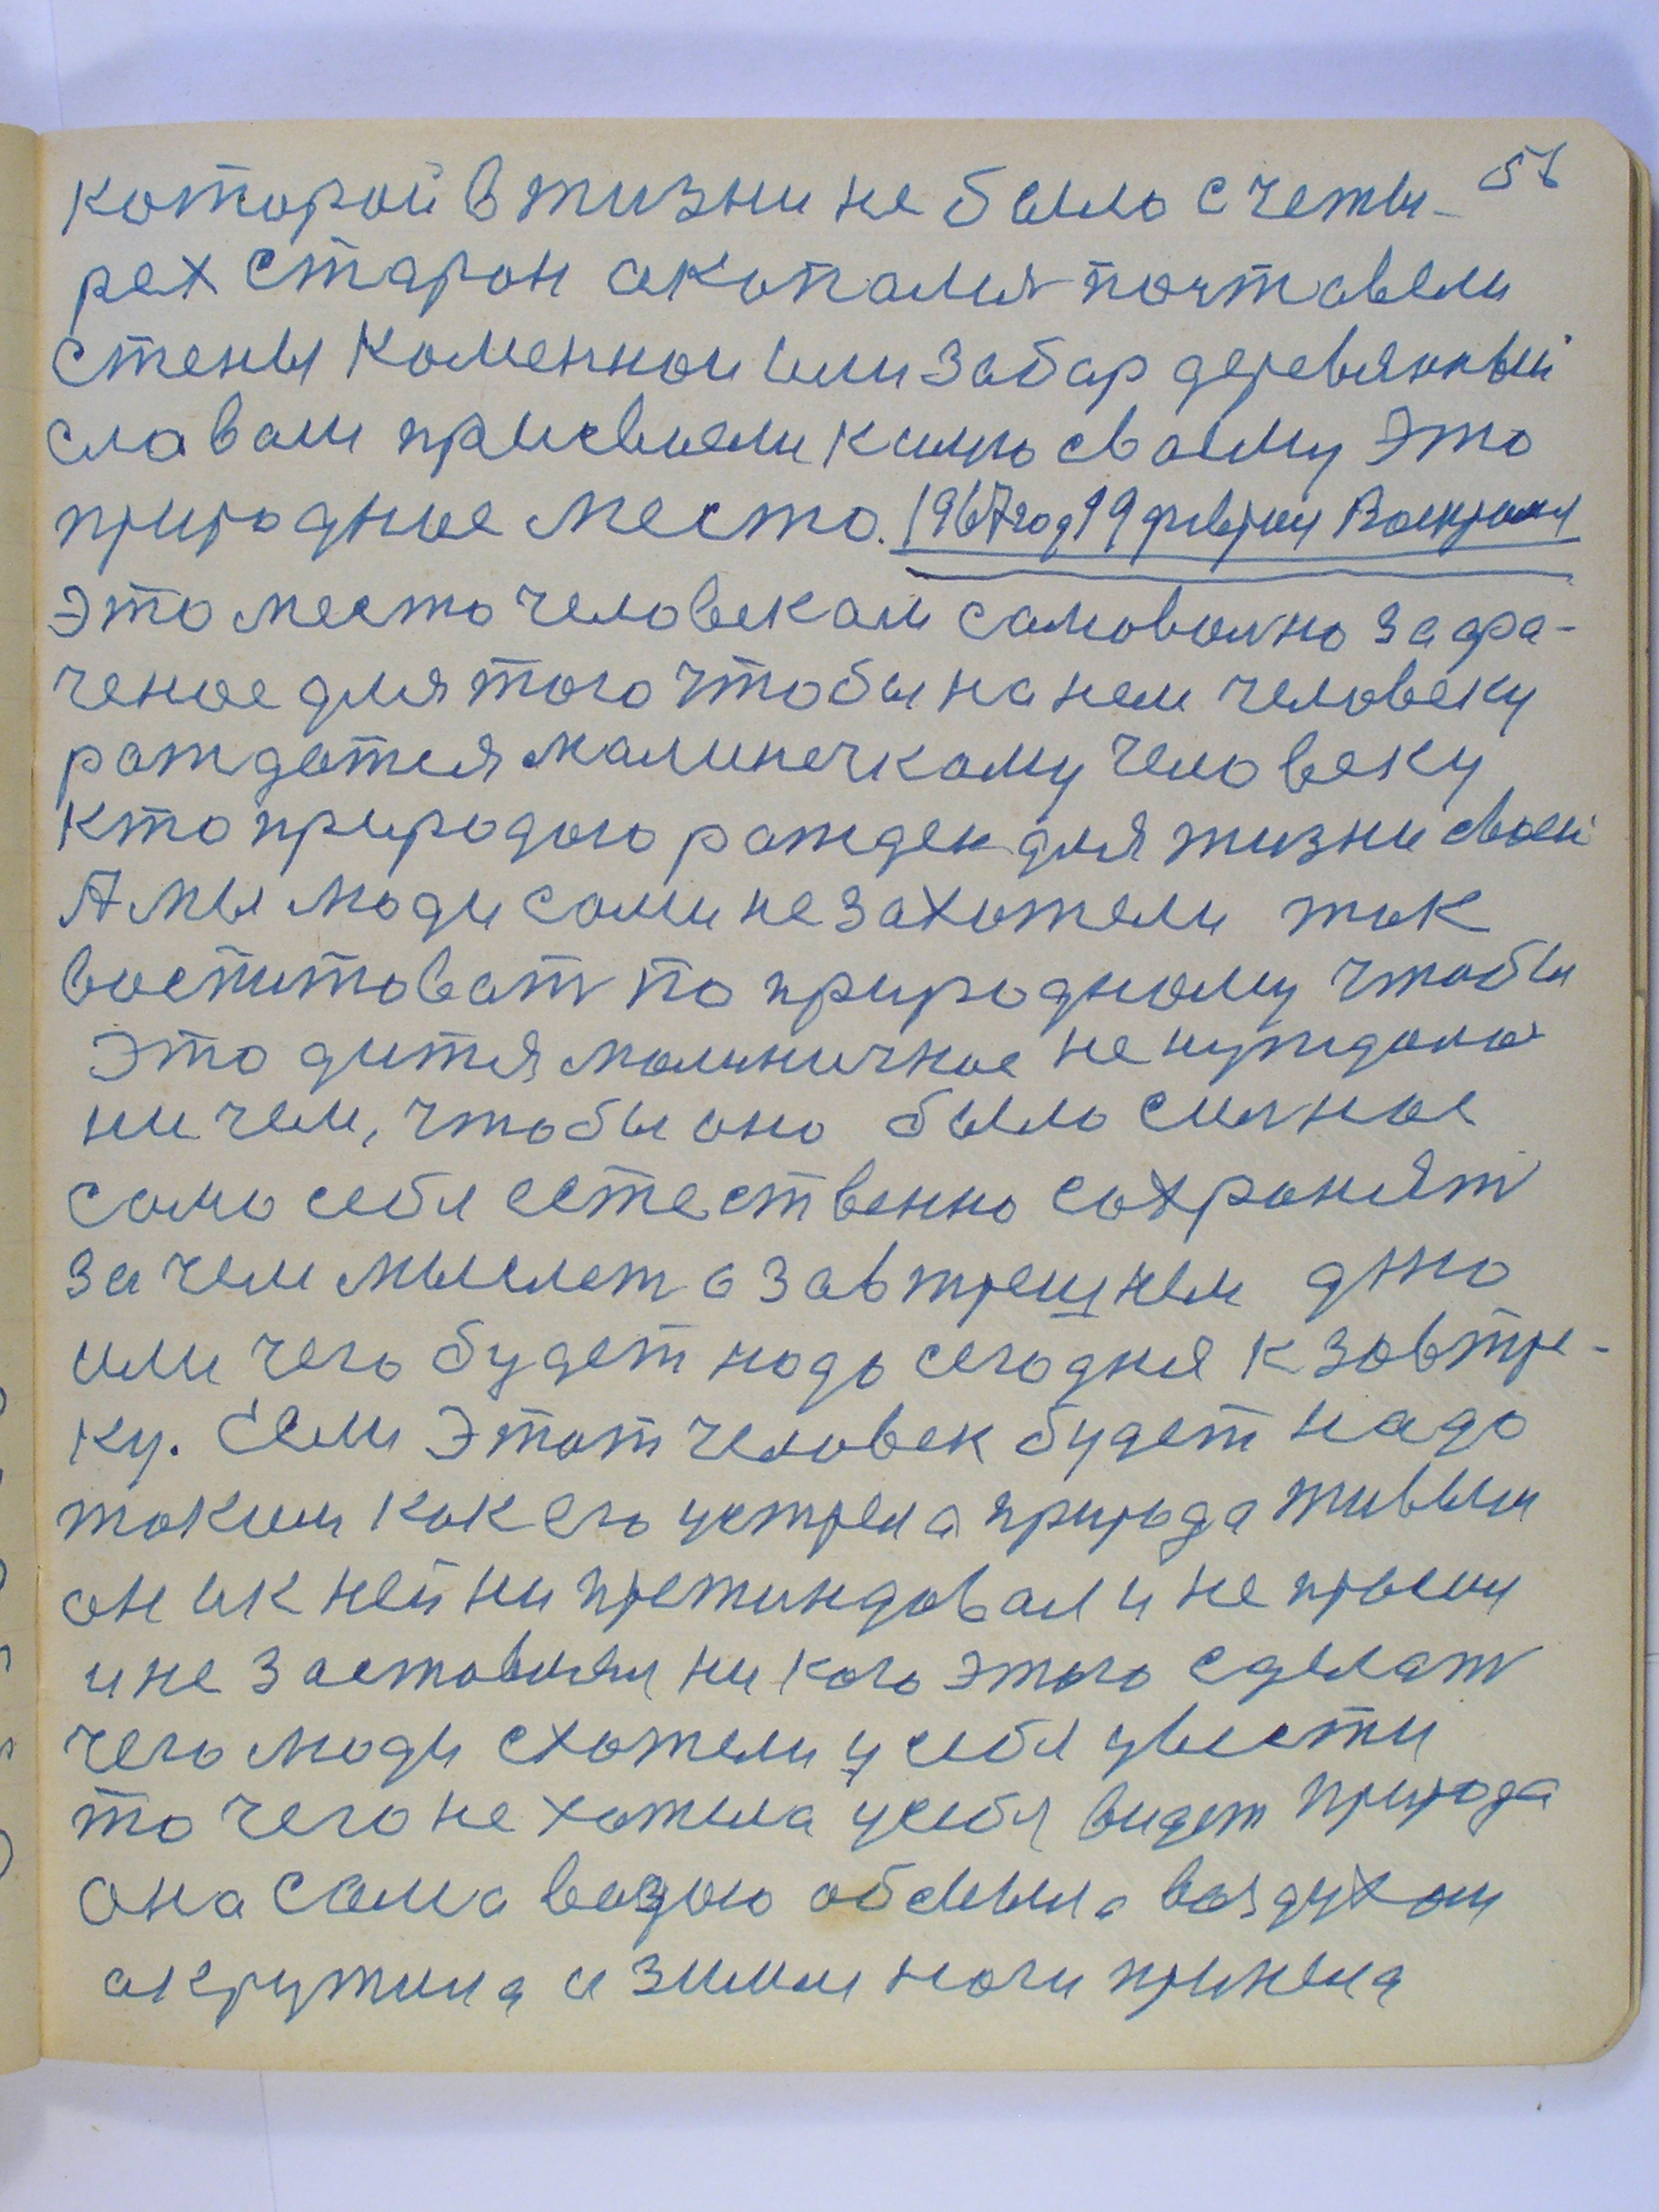 которой в жизни не было с четы- 51
рех старон акопалися поставели
стены каменнои или забар деревянный
славам присвоели к имю своему это
природное место. 1967 год 19 февраля
Это место человекам самоволно захва-
ченое для того чтобы на нем человеку
рождатся малинечкому человеку
кто природою рожден для жизни своей
А мы люди сами не захотели так
воспитоват по природному чтобы
это дитя малиничкое не нуждалос
ни чем, чтобы оно было силное
само себя естественно сохранят
за чем мыслет о завтрешнем дню
или чего будет надо сегодня к завтре-
ку. Если этот человек будет надо
таким как его устрела природа живым
он и к ней ни претиндовал и не просил
и не заставлял ни кого этого сделат
чего люди схотели у себя увести
то чего не хотела у себя видет природа
она сама водою обмыла воздухом
акружила и землю ноги приняла